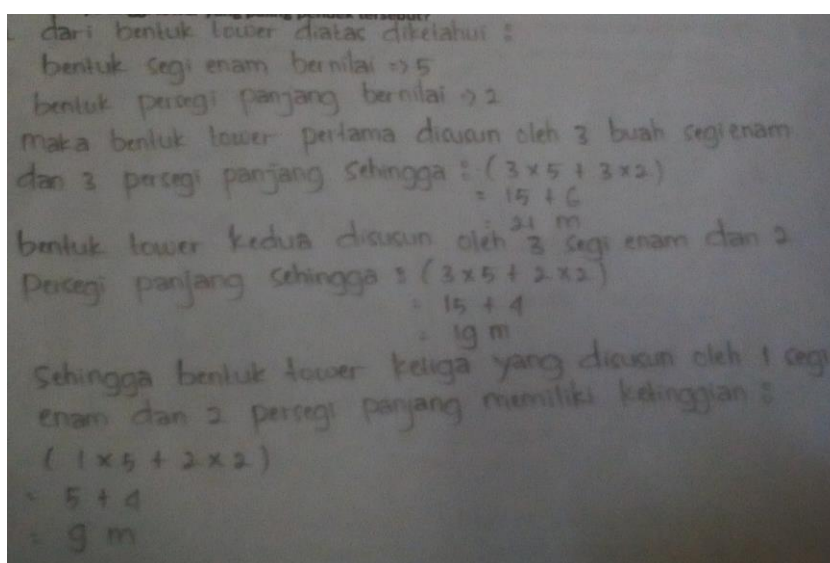 yang paling pendek tersebut?
dari bentuk tower diatas diketahui :
bentuk segi enam bernilai => 5
bentuk persegi panjang bernilai => 2
maka bentuk tower pertama disusun oleh 3 buah segienam
dan 3 persegi panjang sehingga : (3 x 5 + 3 x 2)
= 15 + 6
= 21 m
bentuk tower kedua disusun oleh 3 segi enam dan 2
Persegi panjang sehingga : (3 x 5 + 2 x 2)
= 15 + 4
= 19 m
Sehingga bentuk tower ketiga yang disusun oleh 1 segi
enam dan 2 persegi panjang memiliki ketinggian :
(1 x 5 + 2 x 2)
= 5 + 4
= 9 m